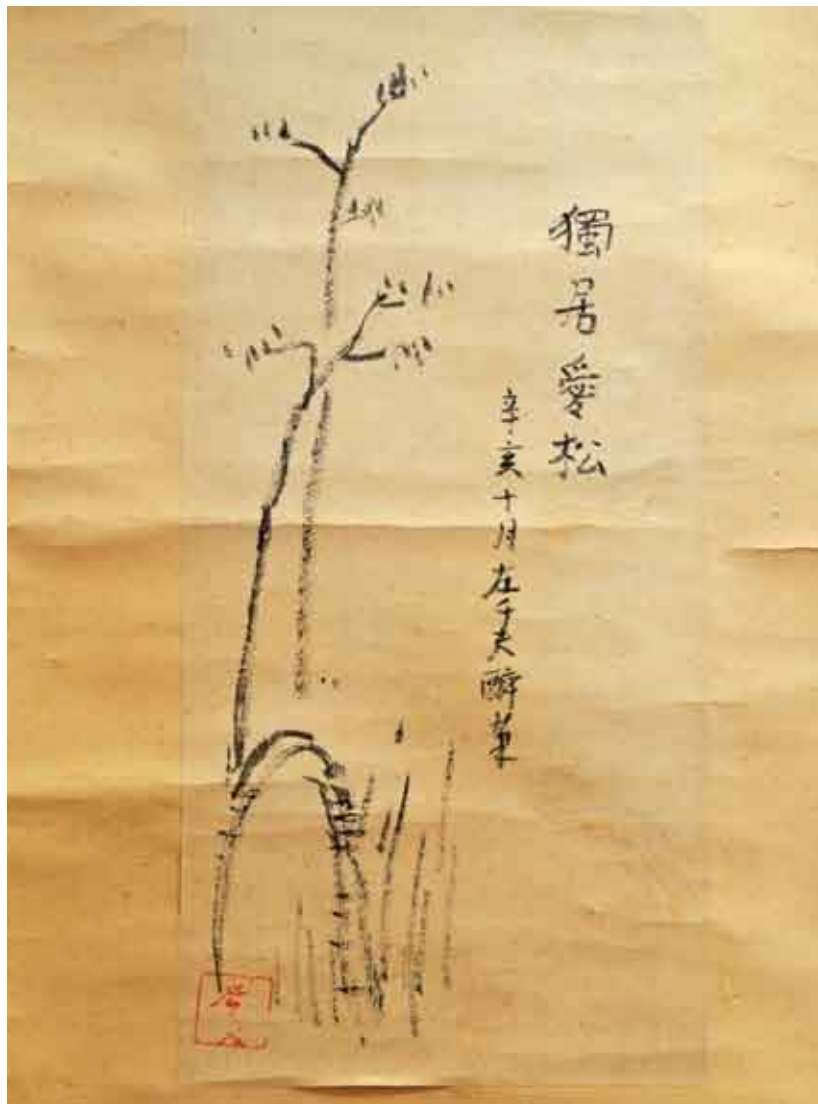 獨居愛松
辛亥十月左千夫醉筆